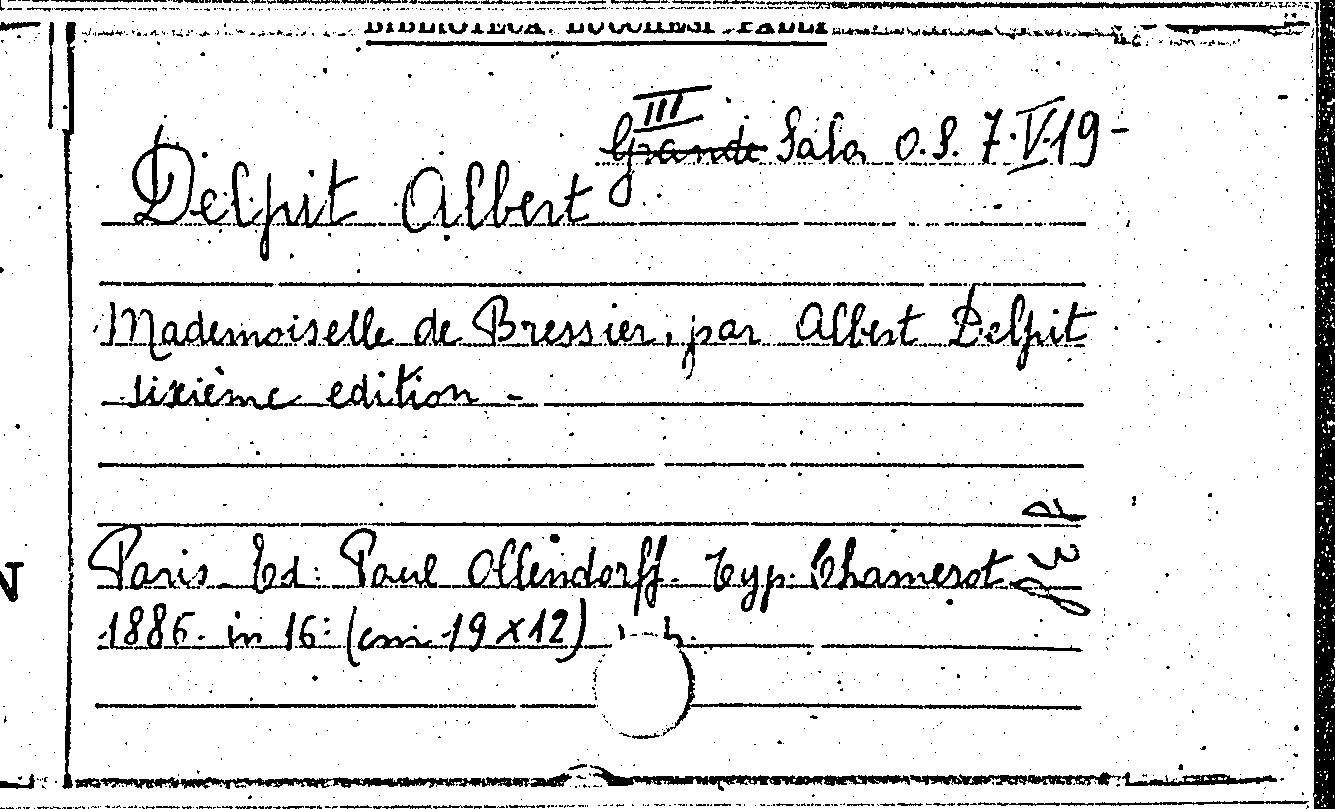 BIBLIOTECA LUCCHESI PALLI
III
Grande Sala O.S. 7.V.19-
Delpit Albert
Mademoiselle de Bressier, par Albert Delpit
sixième edition -
Paris Ed: Paul Ollendorff. Typ. Chamerot
1886. in 16: (cm. 19 x 12)